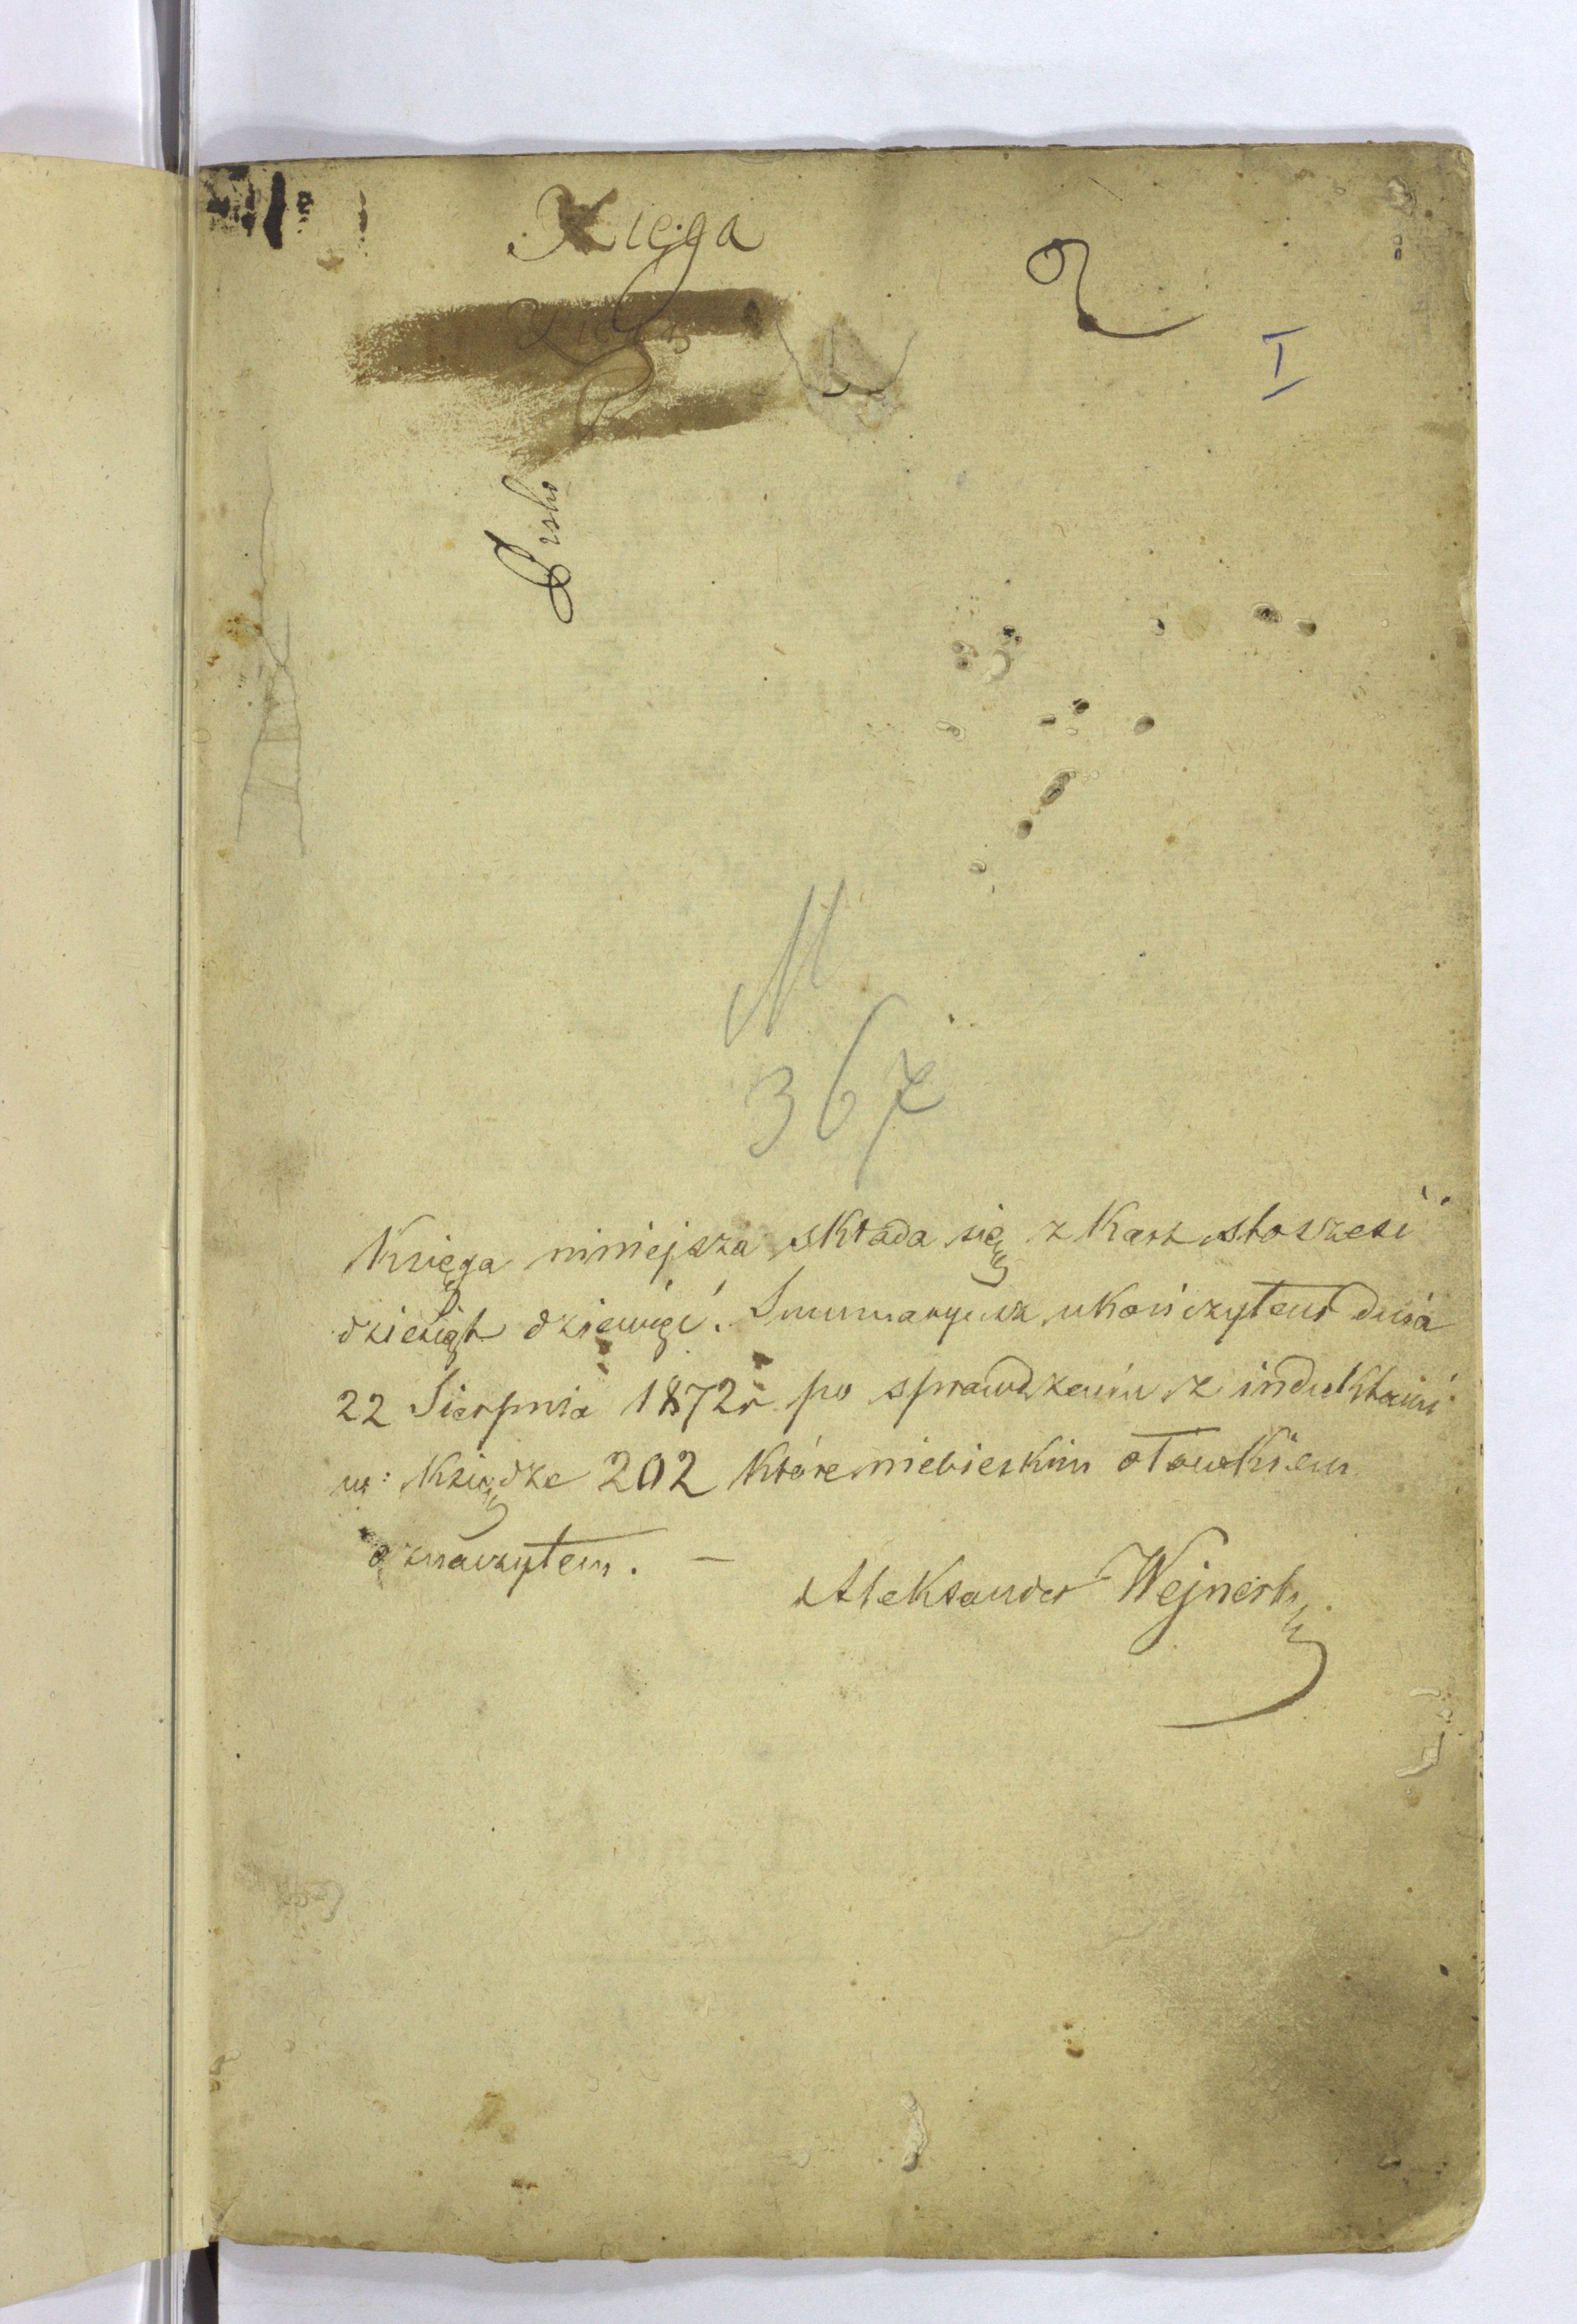 Xięga
2
I
M
367
Księga niniejsza składa się z Kart stosześć
dziesiąt dziewięć. Summaryusz ukończyłem dnia
22 Sierpnia 1872 r po sprawdzeniu z induktami
w: Księdze 202 które niebieskim ołówkiem
oznaczyłem. —
Aleksander Wejnert